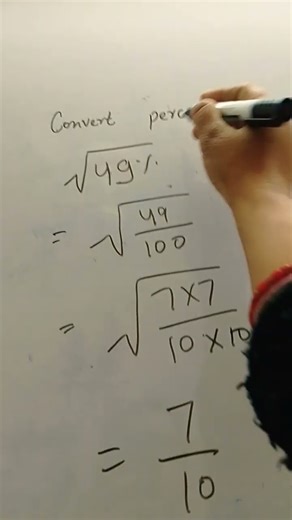 Convert
√49%
= √49/100
= √7×7/10×10
= 7/10